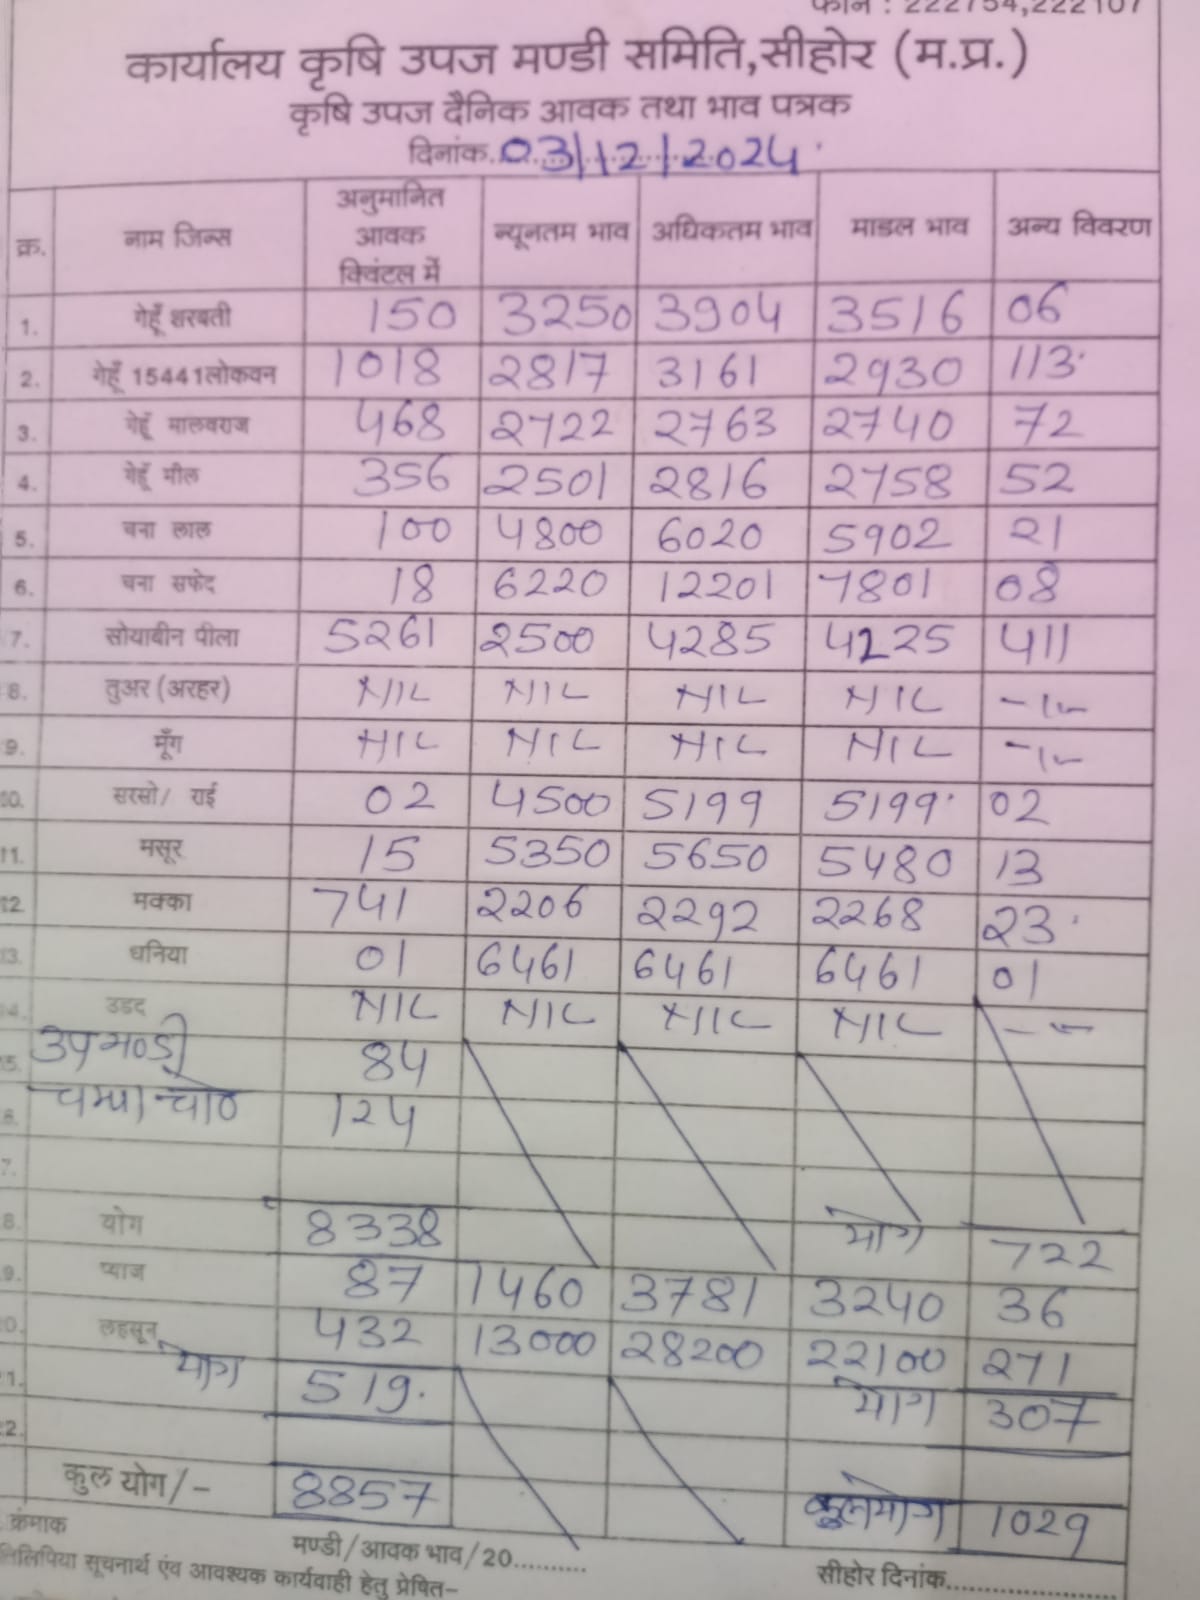 फोन : 222754,222107
कार्यालय कृषि उपज मण्डी समिति,सीहोर (म.प्र.)
कृषि उपज दैनिक आवक तथा भाव पत्रक
दिनांक. 03/12/2024
क्र. नाम जिन्स अनुमानित आवक क्विंटल में न्यूनतम भाव अधिकतम भाव माडल भाव अन्य विवरण
1. गेहूँ शरबती 150 3250 3904 3516 06
2. गेहूँ 15441लोकवन 1018 2817 3161 2930 113
3. गेहूँ मालवराज 468 2722 2763 2740 72
4. गेहूँ मील 356 2501 2816 2758 52
5. चना लाल 100 4800 6020 5902 21
6. चना सफेद 18 6220 12201 7801 08
7. सोयाबीन पीला 5261 2500 4285 4225 411
8. तुअर (अरहर) NIL NIL NIL NIL
9. मूँग NIL NIL NIL NIL
10. सरसो/ राई 02 4500 5199 5199 02
11. मसूर 15 5350 5650 5480 13
12 मक्का 741 2206 2292 2268 23
13. धनिया 01 6461 6461 6461 01
14. उडद NIL NIL NIL NIL
15. उपमण्डी 84
6. 124
7.
8. योग 8338 योग 722
9. प्याज 87 1460 3781 3240 36
0. लहसून 432 13000 28200 22100 271
1. योग 519. योग 307
2.
कुल योग/- 8857 कुलयोग 1029
क्रंमाक मण्डी/आवक भाव/20........... सीहोर दिनांक......................
तिलिपिया सूचनार्थ एंव आवश्यक कार्यवाही हेतु प्रेषित–